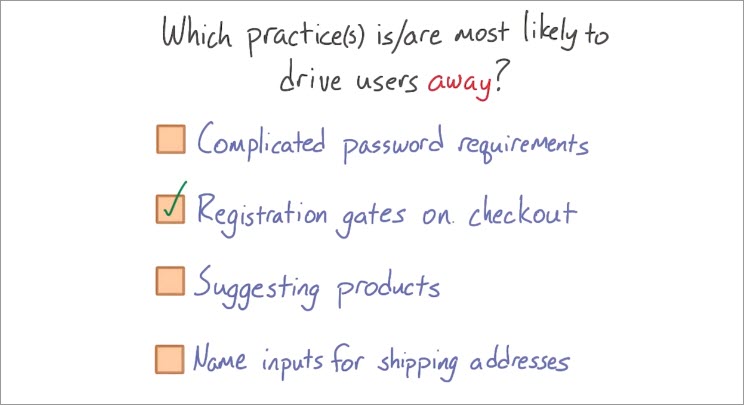 Which practice(s) is/are most likely to
drive users away?
Complicated password requirements
Registration gates on. checkout
Suggesting products
Name inputs for shipping addresses